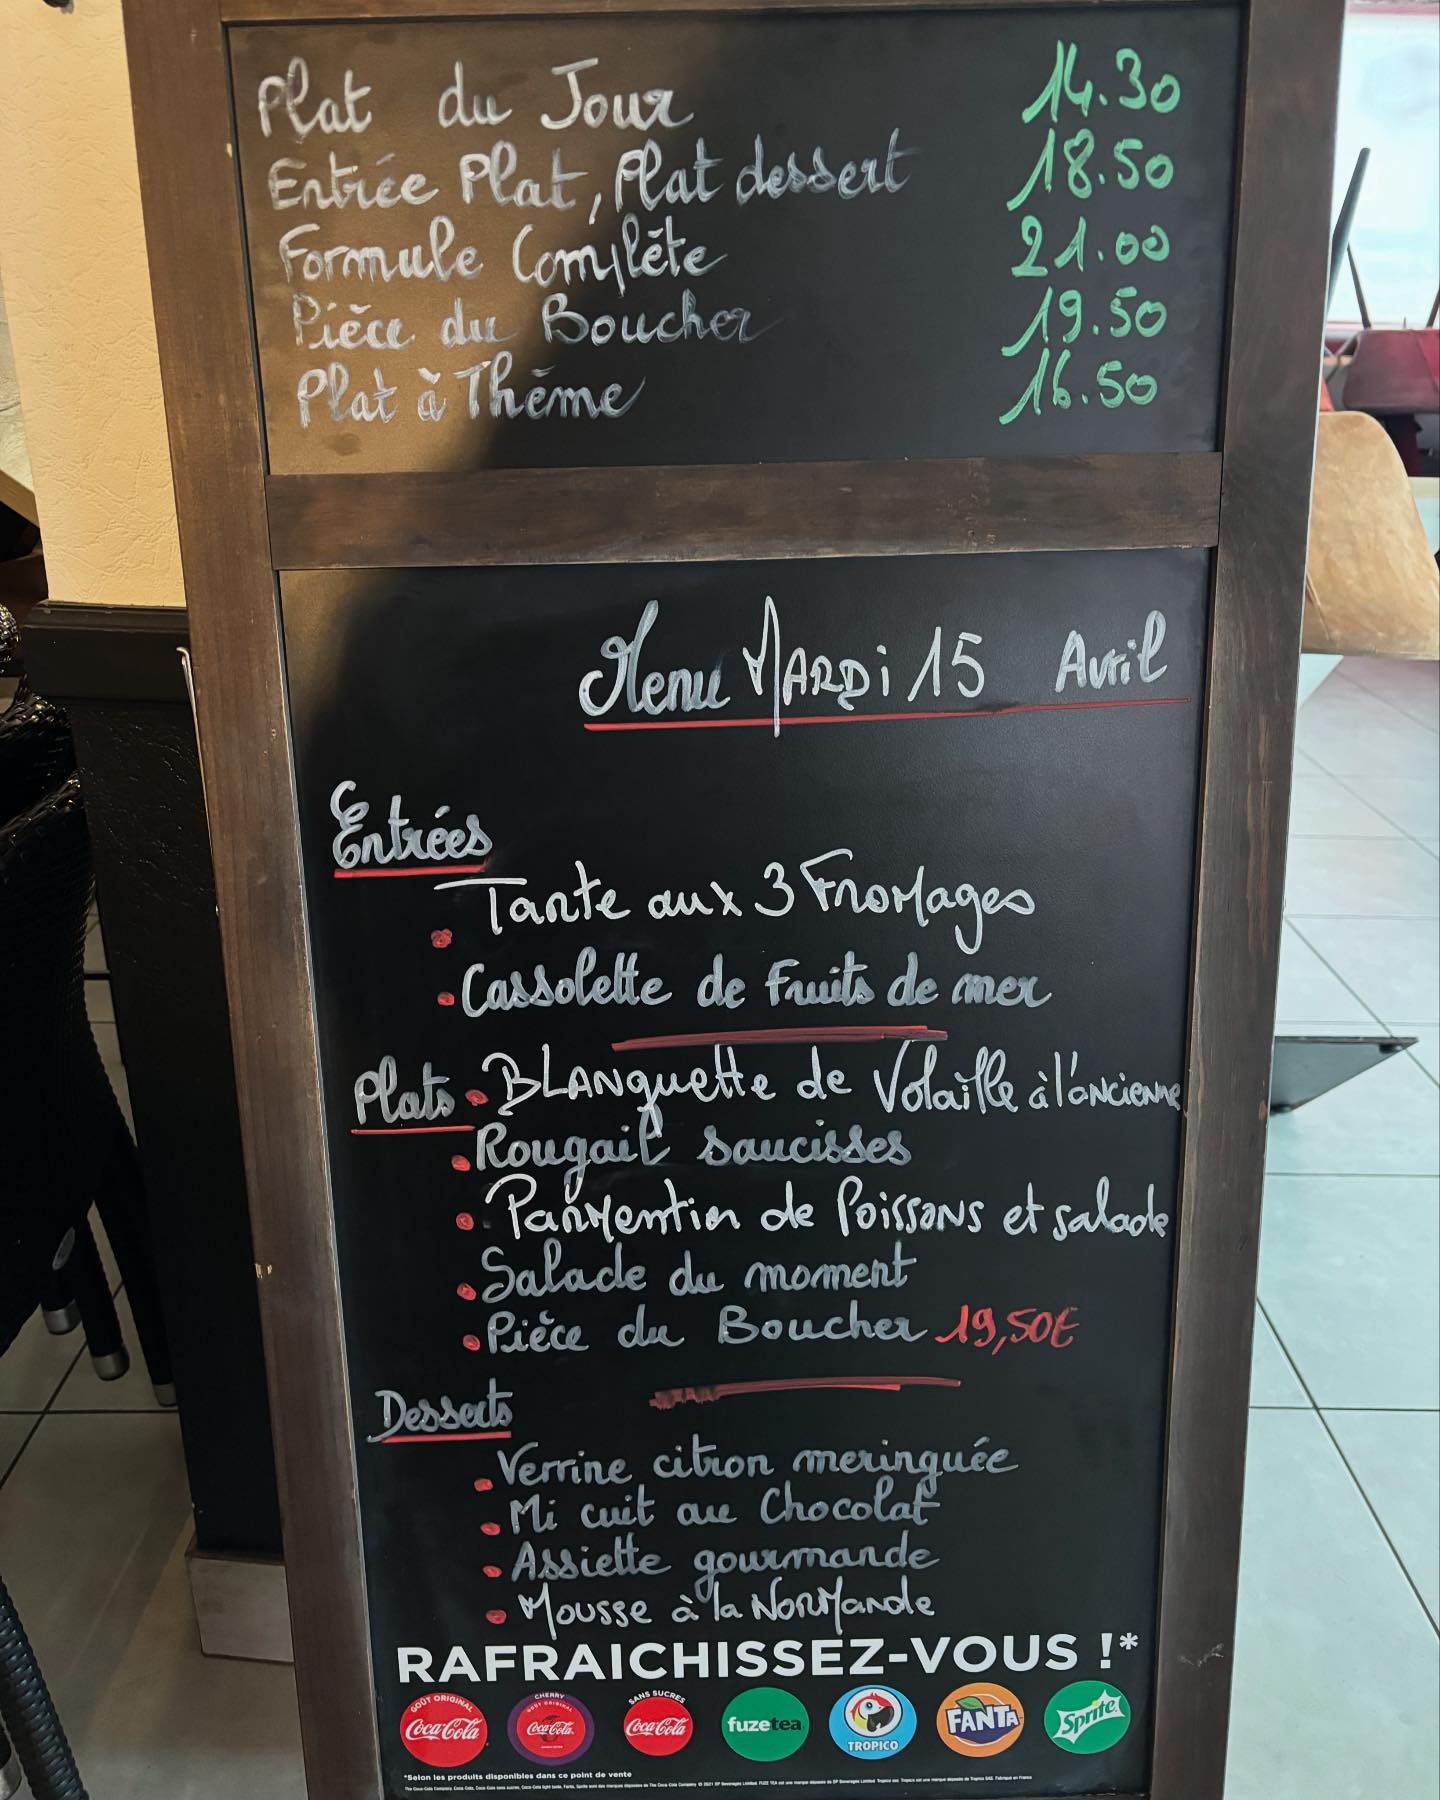 Plat du Jour 14.30
Entrée Plat, Plat dessert 18.50
Formule Complète 21.00
Pièce du Boucher 19.50
Plat à Thème 16.50
Menu Mardi 15 Avril
Entrées
Tarte aux 3 Fromages
Cassolette de Fruits de mer
Plats • Blanquette de Volaille à l'ancienne
• Rougail saucisses
• Parmentier de Poissons et salade
• Salade du moment
• Pièce du Boucher 19,50€
Desserts
• Verrine citron meringuée
• Mi cuit au Chocolat
• Assiette gourmande
• Mousse à la Normande
RAFRAICHISSEZ-VOUS !*
GOÛT ORIGINAL Coca-Cola
CHERRY GOÛT ORIGINAL Coca-Cola
SANS SUCRES Coca-Cola
fuzetea
TROPICO
FANTA
Sprite
*Selon les produits disponibles dans ce point de vente